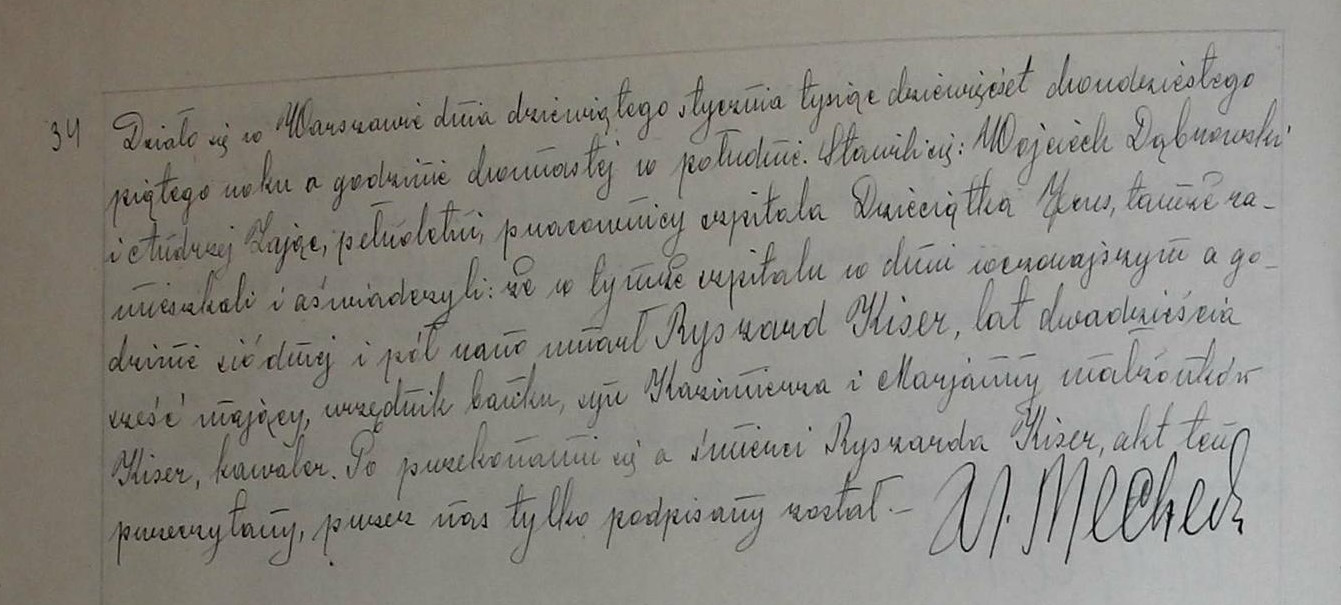 34 Działo się w Warszawie dnia dziewiątego stycznia tysiąc dziewięćset dwudziestego
piątego roku o godzinie dwunastej w południe. Stawili się: Wojciech Dąbrowski
i Andrzej Zając, pełnoletni, pracownicy szpitala Dzieciątka Jezus, tamże za-
mieszkali i oświadczyli: że w tymże szpitalu w dniu wczorajszym o go-
dzinie siódmej i pół rano umarł Ryszard Kiser, lat dwadzieścia
sześć mający, urzędnik banku, syn Kazimierza i Marjanny małżonków
Kiser, kawaler. Po przekonaniu się o śmierci Ryszarda Kiser, akt ten
przeczytany, przez nas tylko podpisany został.-